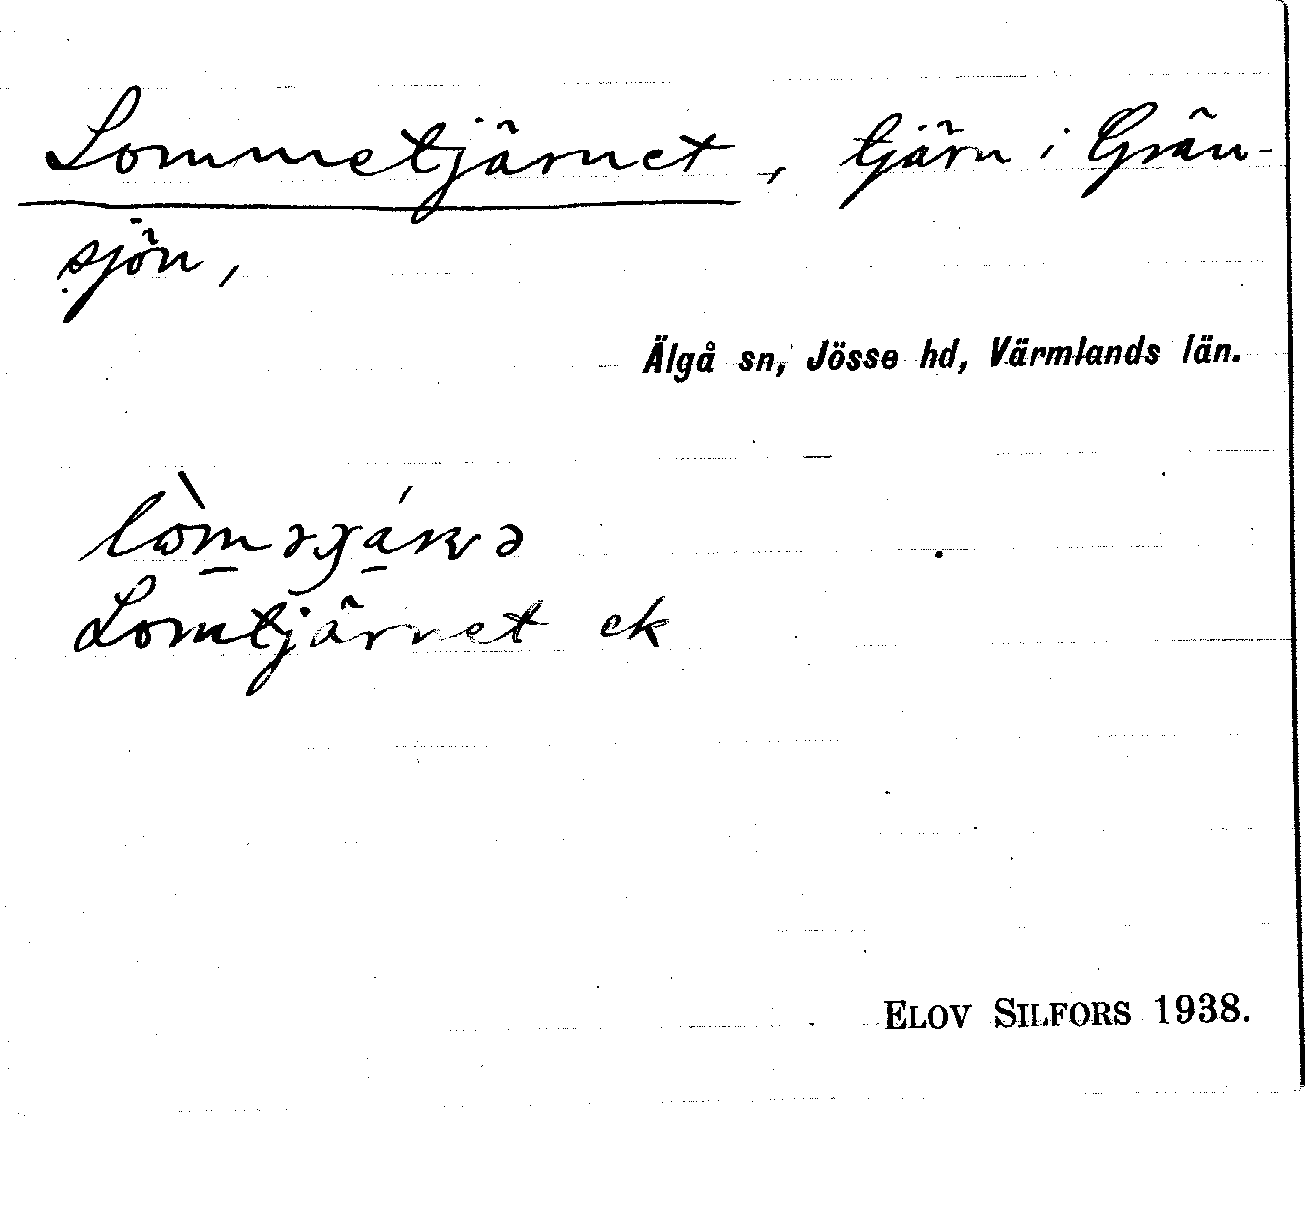 Lommetjärnet, tjärn i Grän-
sjön,
Älgå sn, Jösse hd, Värmlands län.
Lomtjärnet ek
ELOV SILFORS 1938.